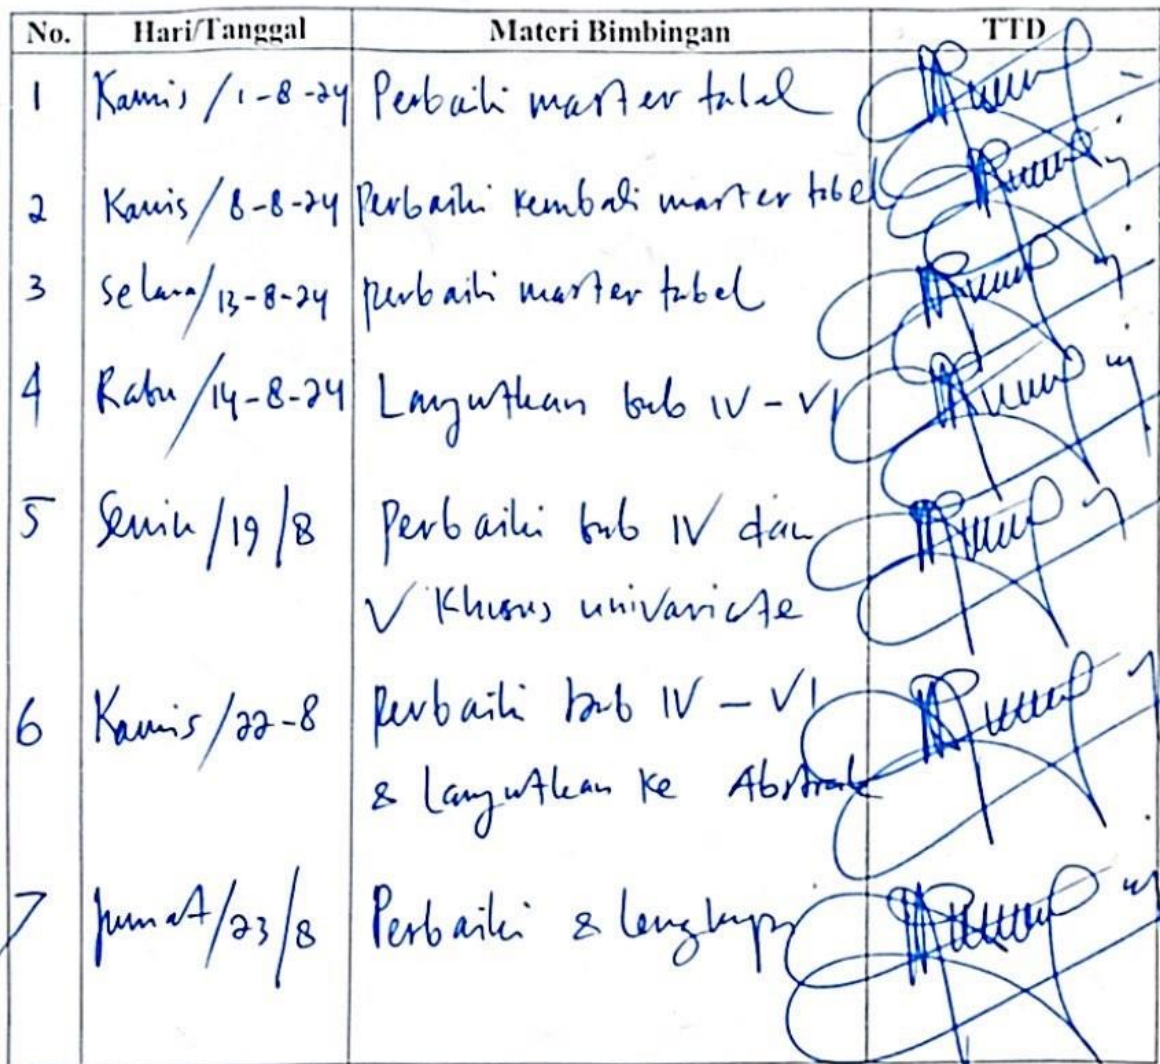 No. Hari/Tanggal Materi Bimbingan TTD
1 Kamis / 1-8-24 Perbaiki master tabel
2 Kamis / 8-8-24 Perbaiki kembali master tabel
3 Selasa / 13-8-24 perbaiki master tabel
4 Rabu / 14-8-24 Lanjutkan bab IV - VI
5 Senin / 19 / 8 Perbaiki bab IV dan
V Khusus univariate
6 Kamis / 22-8 Perbaiki bab IV - VI
& Lanjutkan ke Abstrak
7 Jumat / 23 / 8 Perbaiki & lengkapi